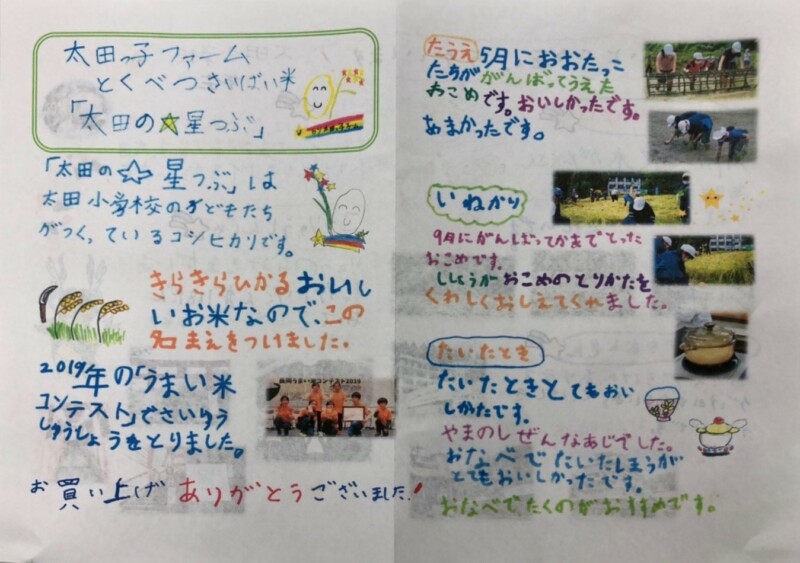 太田っ子ファーム
とくべつさいばい米
「太田の☆星つぶ」
「太田の☆星つぶ」は
太田小学校の子どもたち
がつくっているコシヒカリです。
きらきらひかるおいし
いお米なので、この
名まえをつけました。
2019年の「うまい米
コンテスト」でさいゆう
しゅうしょうをとりました。
お買い上げありがとうございました!
たうえ
5月におおたっこ
たちががんばってうえた
おこめです。おいしかったです。
あまかったです。
いねかり
9月にがんばってかまでとった
おこめです。
ししょうがおこめのとりかたを
くわしくおしえてくれました。
たいたとき
たいたときとてもおい
しかたです。
やまのしぜんなあじでした。
おなべでたいたほうが
とてもおいしかったです。
おなべでたくのがおすすめです。